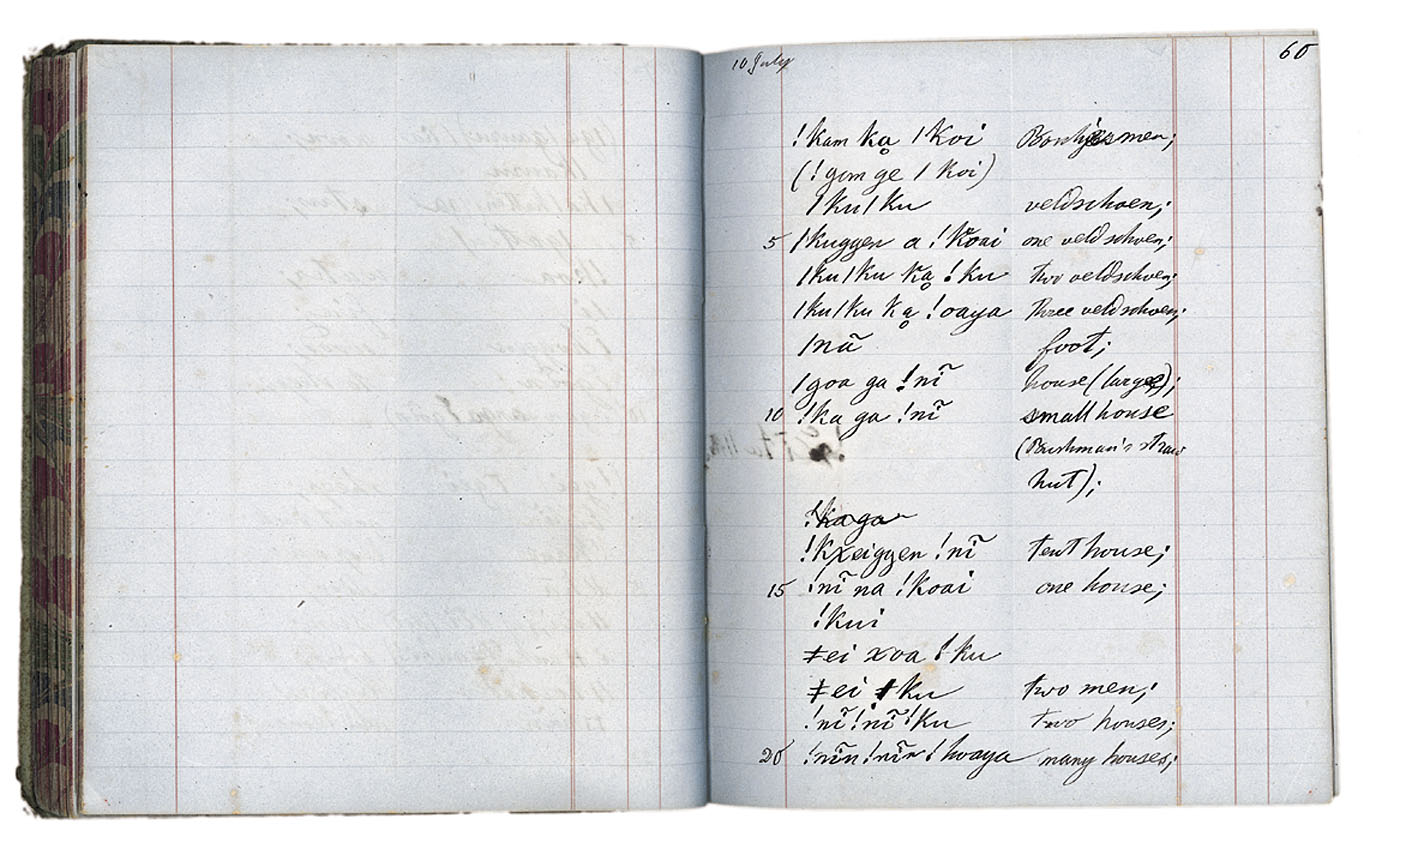 10 July 60
!kam ką |koi Boschjesmen;
(!gum ge |koi)
|ku|ku veldschoen;
5 |kuggen a !koai one veldschoen;
|ku|ku ką !ku two veldschoen;
|ku|ku ką !oaya three veldschoen;
|nã foot;
|goa ga !nĩ house (large);
10 !ka ga !nĩ small house
(Bushman's straw
hut);
!kaga
!kxeiggen !nĩ tent house;
15 !nĩ na !koai one house;
!kui
ǂei xoa !ku
ǂei !ku two men;
!nĩ !nĩ !ku two houses;
20 !nĩn !nĩn !hoaya many houses;